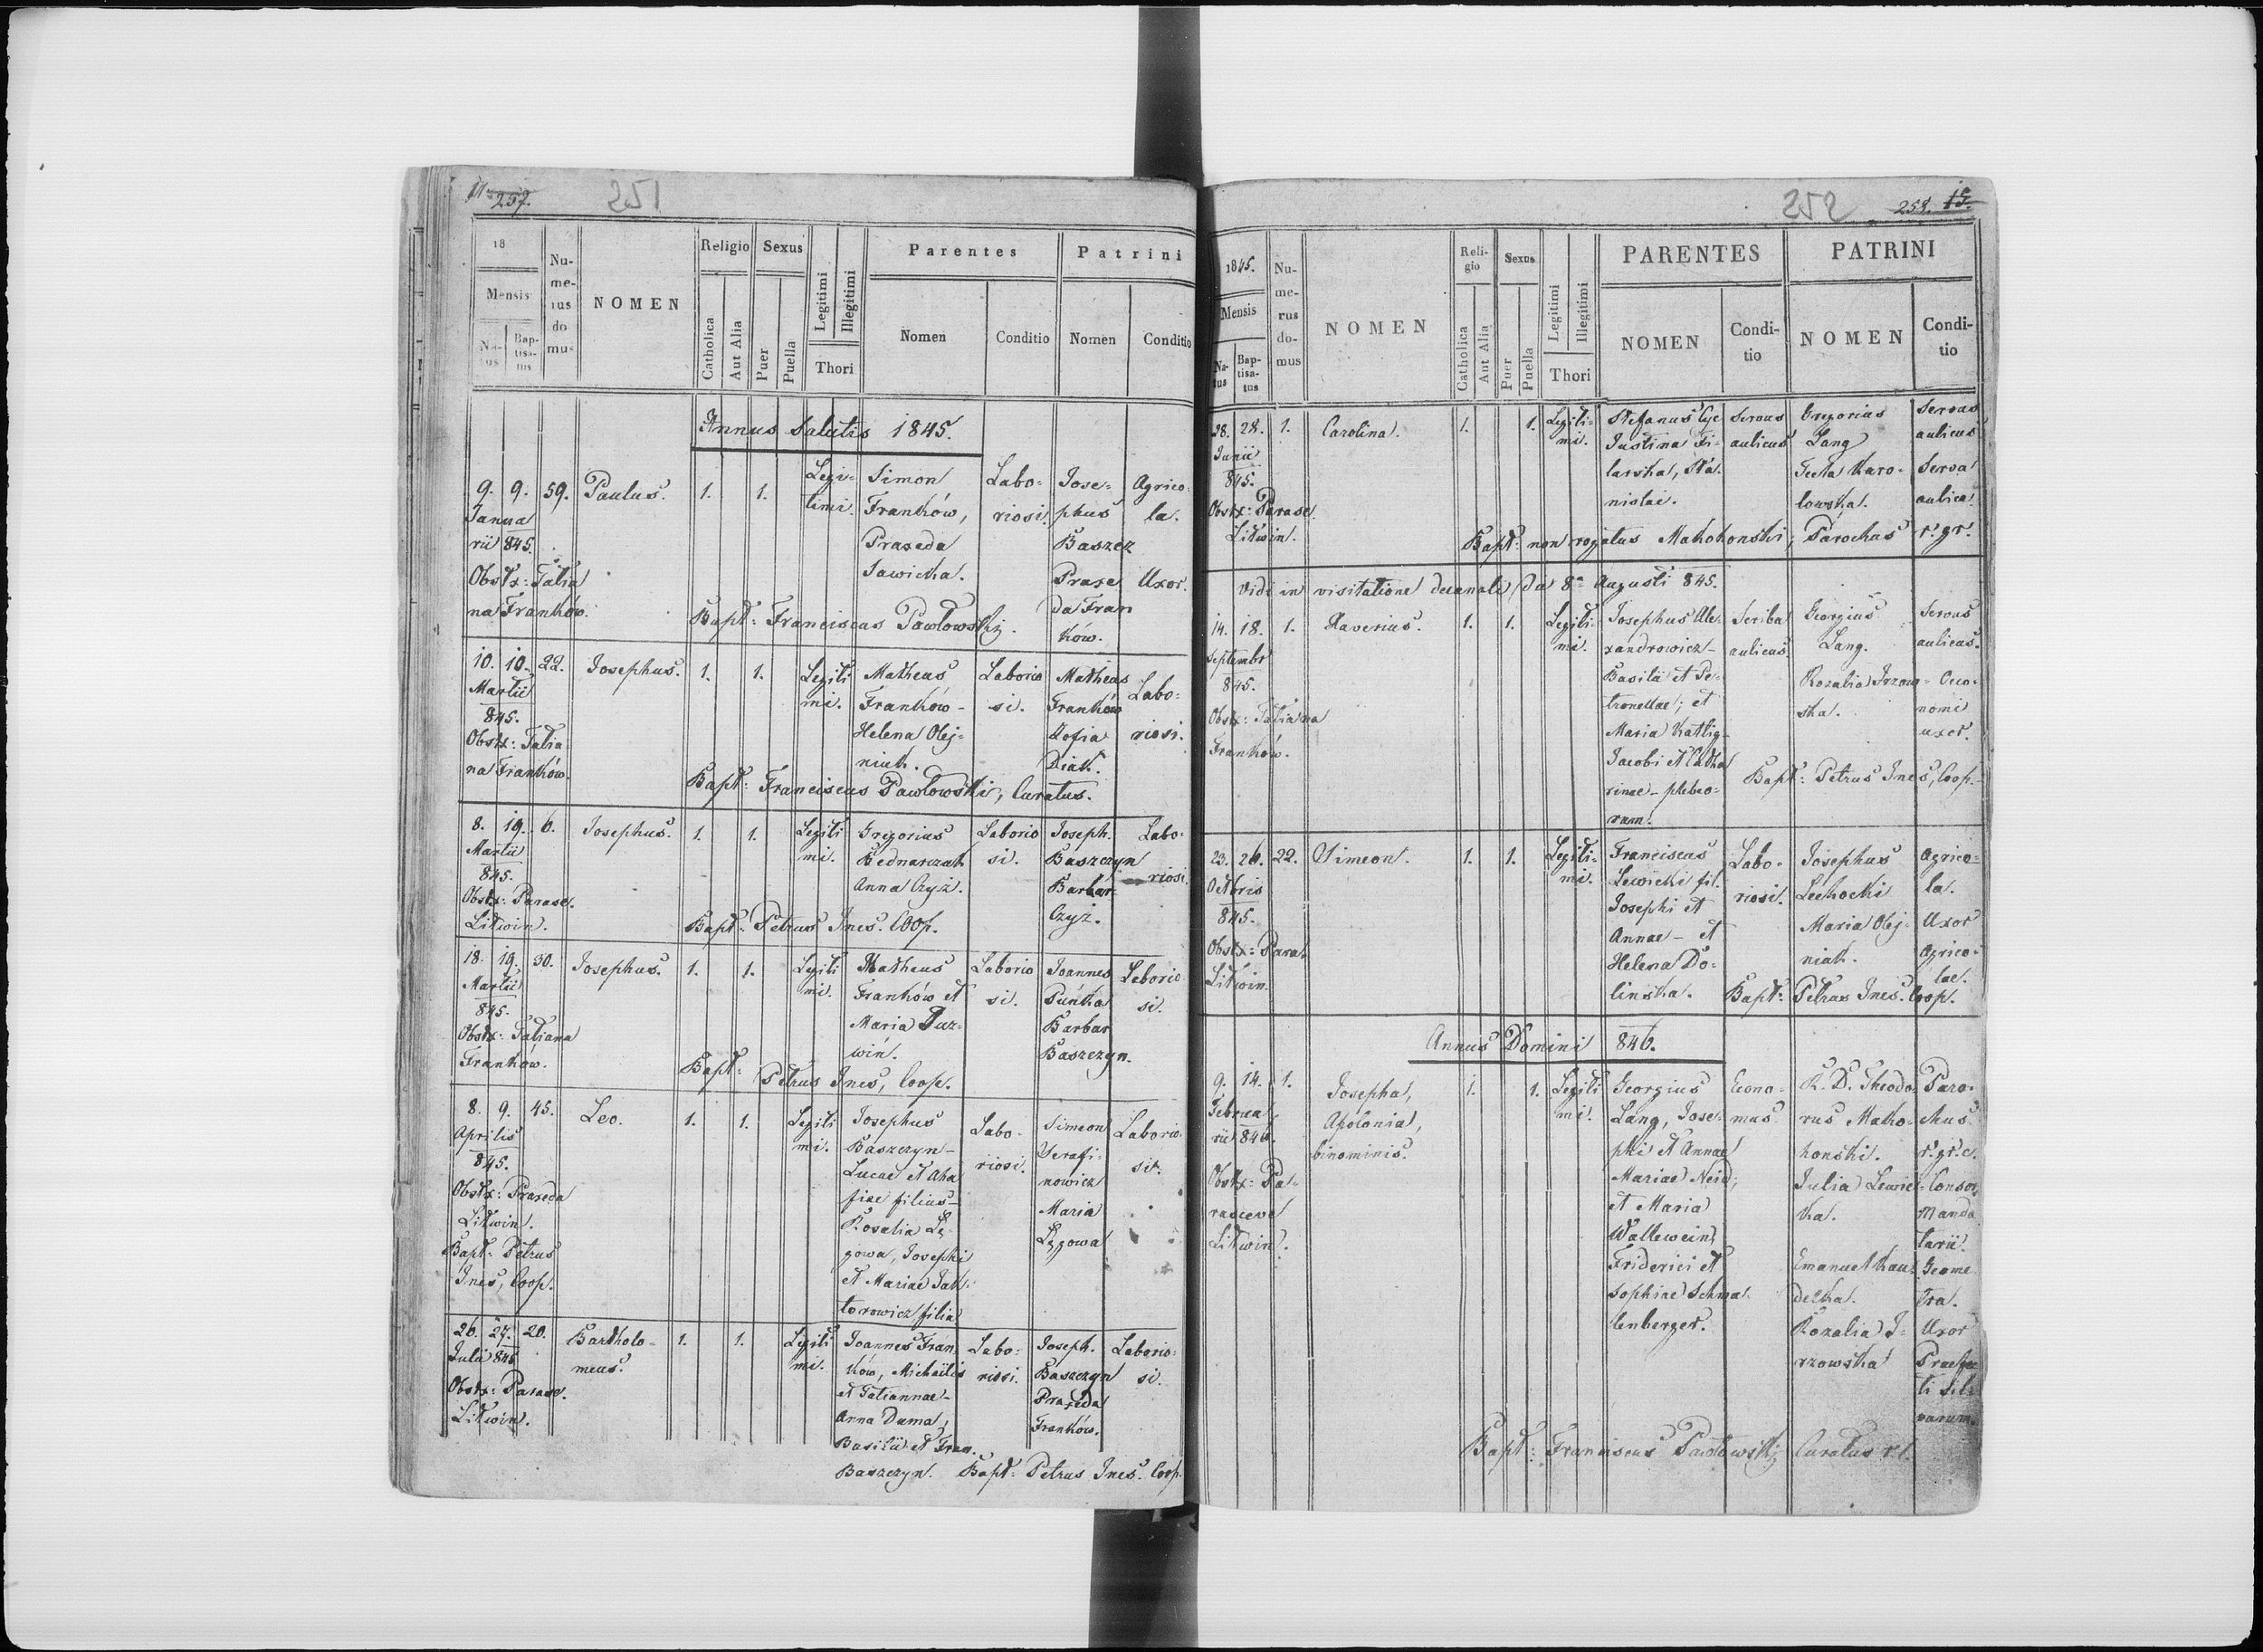 257.
251
18
Mensis
Na-
tus
Bap-
tisa-
tus
Nu-
me-
rus
do
mus
NOMEN
Religio
Catholica
Aut Alia
Sexus
Puer
Puella
Legitimi
Illegitimi
Thori
Parentes
Nomen
Conditio
Patrini
Nomen
Conditio
Annus Salutis 1845.
9. 9. 59. Paulus. 1. 1.
Janua
rii 845.
Obstx: Tatia
na Franków.
Legi-
timi.
Simon
Franków,
Praxeda
Sawicka.
Labo-
riosi.
Jose-
phus
Baszcz
Praxe
da Fran
ków.
Agrico-
la.
Uxor.
Bapt: Franciscus Pawłowskj.
10. 10. 22. Josephus. 1. 1.
Martii
845.
Obstx: Tatia
na Franków.
Legiti
mi.
Matheus
Franków-
Helena Olej-
niak.
Laborio
si.
Matheus
Franków
Zofia
Diak.
Labo-
riosi.
Bapt: Franciscus Pawłowski, Curatus.
8. 19. 6. Josephus. 1. 1.
Martii
845.
Obstx: Parasc.
Litwin.
Legiti
mi.
Gregorius
Bednarczak
Anna Czyż.
Laborio
si.
Joseph.
Baszczyn
Barbar
Czyż.
Labo-
riosi.
Bapt: Petrus Ines. Coop.
18. 19. 30. Josephus. 1. 1.
Martii
845.
Obstx: Tatiana
Franków.
Legiti
mi.
Matheus
Franków et
Maria Puz-
win.
Laborio
si.
Joannes
Puńka
Barbar
Baszczyn.
Laborio
si.
Bapt: Petrus Ines, Coop.
8. 9. 45. Leo. 1. 1.
Aprilis
845.
Obstx: Praxeda
Litwin.
Bapt: Petrus
Ines, Coop.
Legiti
mi.
Josephus
Baszczyn-
Lucae et Aha
fiae filius-
Rosalia Łę-
gowa, Josephi
et Mariae Jak-
torowicz filia
Labo-
riosi.
Simeon
Serafi-
nowicz
Maria
Łęgowa
Laborio-
si.
26. 27. 20. Bartholo-
meus. 1. 1.
Julii 845
Obstx: Parasc.
Litwin.
Legiti
mi.
Joannes Fran
ków, Michaëlis
et Tatiannae-
Anna Duma,
Basilii et Fran.
Baszczyn.
Labo-
riosi.
Joseph.
Baszczyn
Praxeda
Franków.
Laborio-
si.
Bapt: Petrus Ines. Coop.
252
258. 15.
1845.
Mensis
Na-
tus
Bap-
tisa-
tus
Nu-
me-
rus
do-
mus
NOMEN
Reli-
gio
Catholica
Aut Alia
Sexus
Puer
Puella
Legitimi
Illegitimi
Thori
PARENTES
NOMEN
Condi-
tio
PATRINI
NOMEN
Condi-
tio
28. 28. 1. Carolina. 1. 1.
Junii
845.
Obstx: Parasc.
Litwin.
Legiti-
mi.
Stefanus
Justina Fi-
larska, Sta-
nislai.
Servus
aulicus
Gregorius
Lang
Tecla Karo-
lowska.
Servus
aulicus
Serva
aulica.
Bapt: non rogatus Mahohonski, Parochus r. gr.
Vidi in visitatione decanali da 8a Augusti 845.
14. 18. 1. Xaverius. 1. 1.
Septembr
845.
Obstx: Tatiana
Franków.
Legiti-
mi.
Josephus Ale-
xandrowicz-
Basilii et Pe-
tronellae; et
Maria Katlig-
Jacobi et Catha
rinae- plebeo-
rum.
Scriba
aulicus.
Georgius
Lang.
Rozalia
ska.
Servus
aulicus.
Oeco-
nomi
uxor.
Bapt: Petrus Ines, Coop.
23. 26. 22. Simeon. 1. 1.
Octbris
845.
Obstx: Paras.
Litwin.
Legiti-
mi.
Franciscus
Lewicki fil.
Josephi et
Annae- et
Helena Do-
linska.
Labo-
riosi.
Josephus
Lechocki
Maria Olej-
niak.
Agrico-
la.
Uxor
Agrico-
lae.
Bapt: Petrus Ines. Coop.
Annus Domini 846.
9. 14. 1.
Februa
rii 846.
Obstx: Pa-
rasceve
Litwin.
Josepha,
Apolonia,
binominis.
1. 1.
Legiti
mi.
Georgius
Lang, Jose-
phi et Annae
Mariae Neid;
et Maria
Wallewein,
Friderici et
Sophiae Schma-
lenberger.
Econo-
mus
R. D. Theodo-
rus Maho-
honski.
Julia Lewic-
ka.
Emanuel Kau-
delka.
Rozalia J-
rzowska
Paro-
chus
r. gr. c.
Consor.
Manda
tarii.
Geome
tra.
Uxor
Praefec
ti sil-
varum.
Bapt: Franciscus Pawłowskj Curatus r. l.